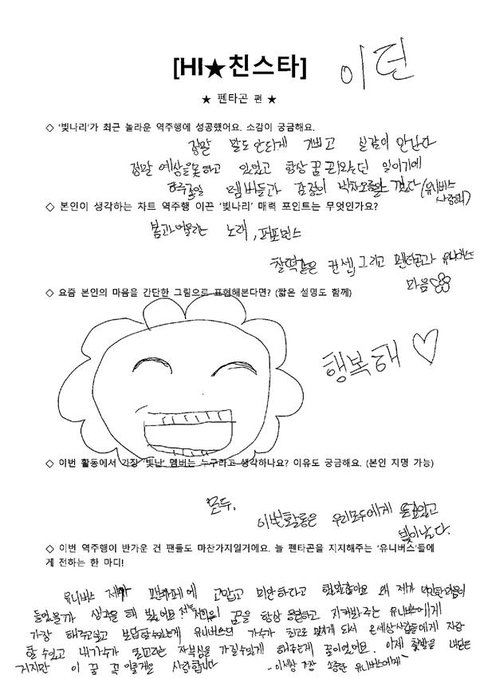 [HI★친스타]
이던
★ 펜타곤 편 ★
◇ '빛나리'가 최근 놀라운 역주행에 성공했어요. 소감이 궁금해요.
정말 말도 안되게 기쁘고 실감이 안난다
정말 예상을 못하고 있었고 항상 꿈 꿔왔던 일이기에
하루하루 멤버들과 감정이 벅차오르는 것 같다 (유니버스
사랑해)
◇ 본인이 생각하는 차트 역주행 이끈 '빛나리' 매력 포인트는 무엇인가요?
봄과 어울리는 노래, 퍼포먼스
찰떡같은 컨셉, 그리고 펜타곤과 유니버스
마음
◇ 요즘 본인의 마음을 간단한 그림으로 표현해본다면? (짧은 설명도 함께)
행복해 ♡
◇ 이번 활동에서 가장 '빛난' 멤버는 누구라고 생각하나요? 이유도 궁금해요. (본인 지명 가능)
모두.
이번활동은 우리모두에게 뜻깊었고
빛이났다.
◇ 이번 역주행이 반가운 건 팬들도 마찬가지일거에요. 늘 펜타곤을 지지해주는 '유니버스'들에
게 전하는 한 마디!
유니버스 제가 고맙고 미안하다고 왜 제가
생각을 해 봤어요? 꿈을 항상 응원하고 지켜봐주는 유니버스에게
가장 해주고싶고 유니버스의 가수가 최고로 되서 온세상사람들에게 자랑
할 수 있고 내가수가 자부심을 가질수있게 해주는게 꿈이었어요. 이제
이 꿈 꼭 이룰게요 사랑합니다 - 이세상 가장 소중한 유니버스에게 -